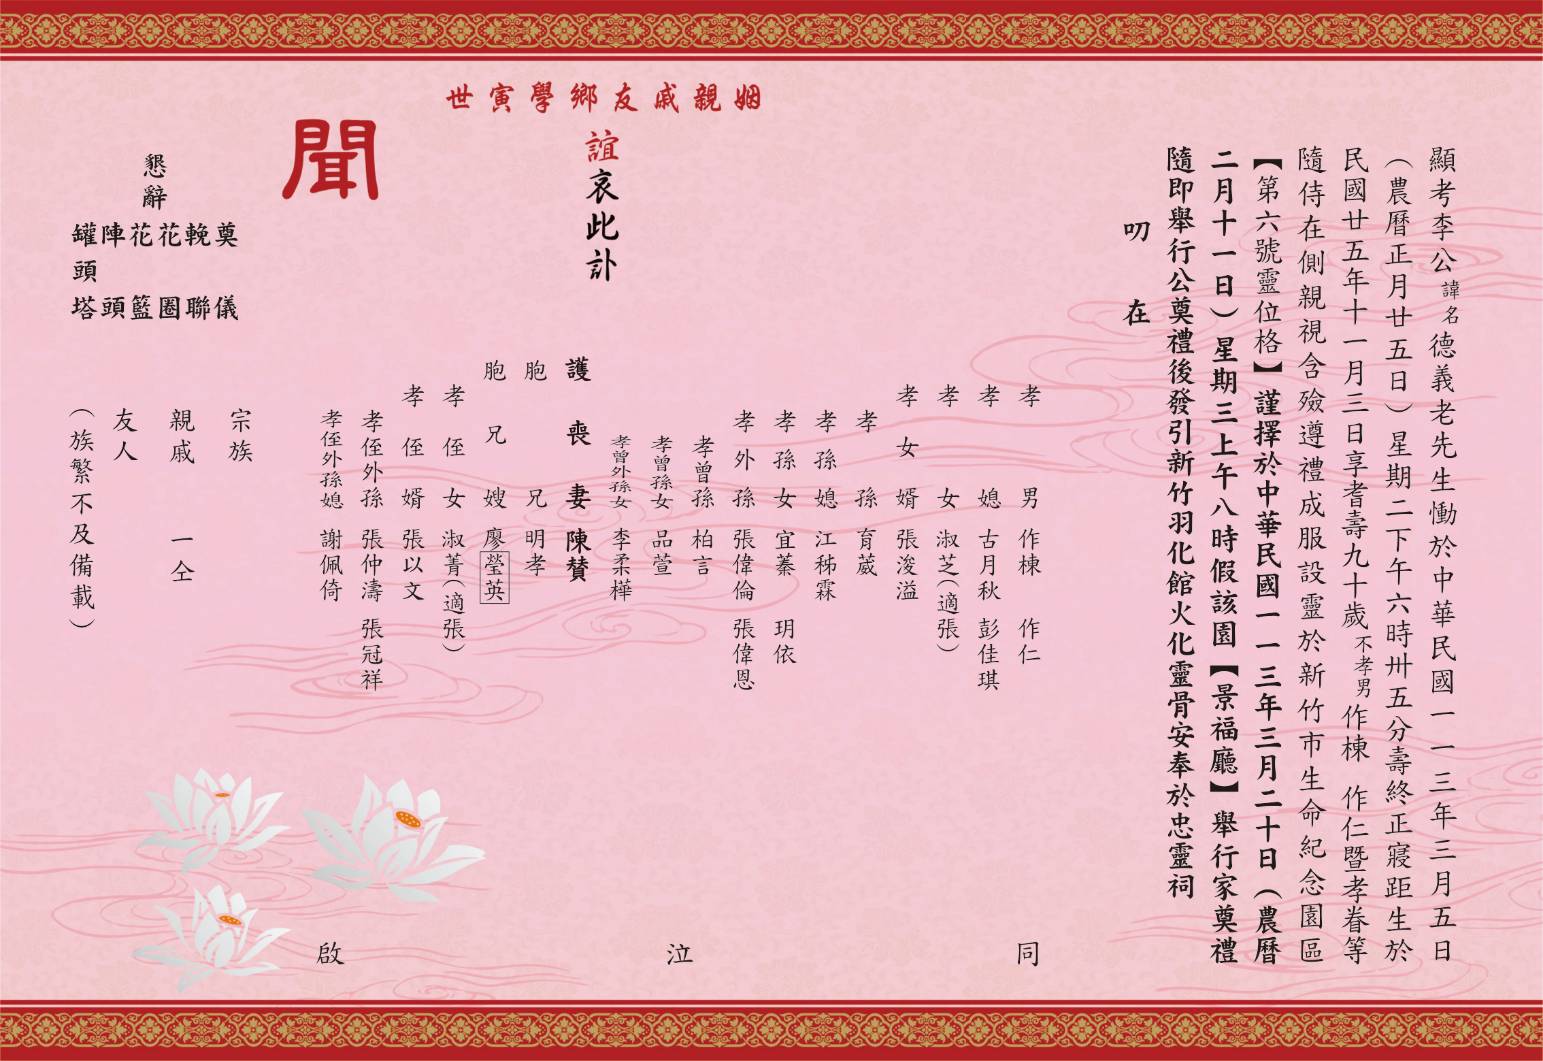 顯考李公諱名德義老先生慟於中華民國一一三年三月五日
（農曆正月廿五日）星期二下午六時卅五分壽終正寢距生於
民國廿五年十一月三日享耆壽九十歲不孝男作棟 作仁暨孝眷等
隨侍在側親視含殮遵禮成服設靈於新竹市生命紀念園區
【第六號靈位格】謹擇於中華民國一一三年三月二十日（農曆
二月十一日）星期三上午八時假該園【景福廳】舉行家奠禮
隨即舉行公奠禮後發引新竹羽化館火化靈骨安奉於忠靈祠
叨在
姻親戚友鄉學寅世
誼哀此訃
聞
孝男 作棟 作仁
孝媳 古月秋 彭佳琪
孝女 淑芝（適張）
孝女婿 張浚溢
孝孫 育葳
孝孫媳 江秭霖
孝孫女 宜蓁 玥依
孝外孫 張偉倫 張偉恩
孝曾孫 柏言
孝曾孫女 品萱
孝曾外孫女 李柔樺
護喪妻 陳贊
胞兄 明孝
胞兄嫂 廖瑩英
孝侄女 淑菁（適張）
孝侄婿 張以文
孝侄外孫 張仲濤 張冠祥
孝侄外孫媳 謝佩倚
同泣啟
宗族
親戚 一仝
友人
（族繁不及備載）
懇辭
奠儀
輓聯
花圈
花籃
陣頭
罐頭塔